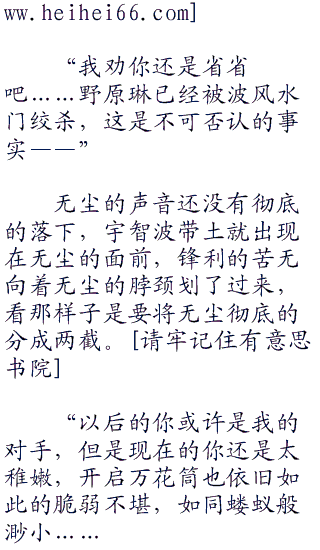 ww.heihei66.com]
“我劝你还是省省
吧……野原琳已经被波风水
门绞杀，这是不可否认的事
实——”
无尘的声音还没有彻底
的落下，宇智波带土就出现
在无尘的面前，锋利的苦无
向着无尘的脖颈划了过来，
看那样子是要将无尘彻底的
分成两截。[请牢记住有意思
书院]
“以后的你或许是我的
对手，但是现在的你还是太
稚嫩，开启万花筒也依旧如
此的脆弱不堪，如同蝼蚁般
渺小……